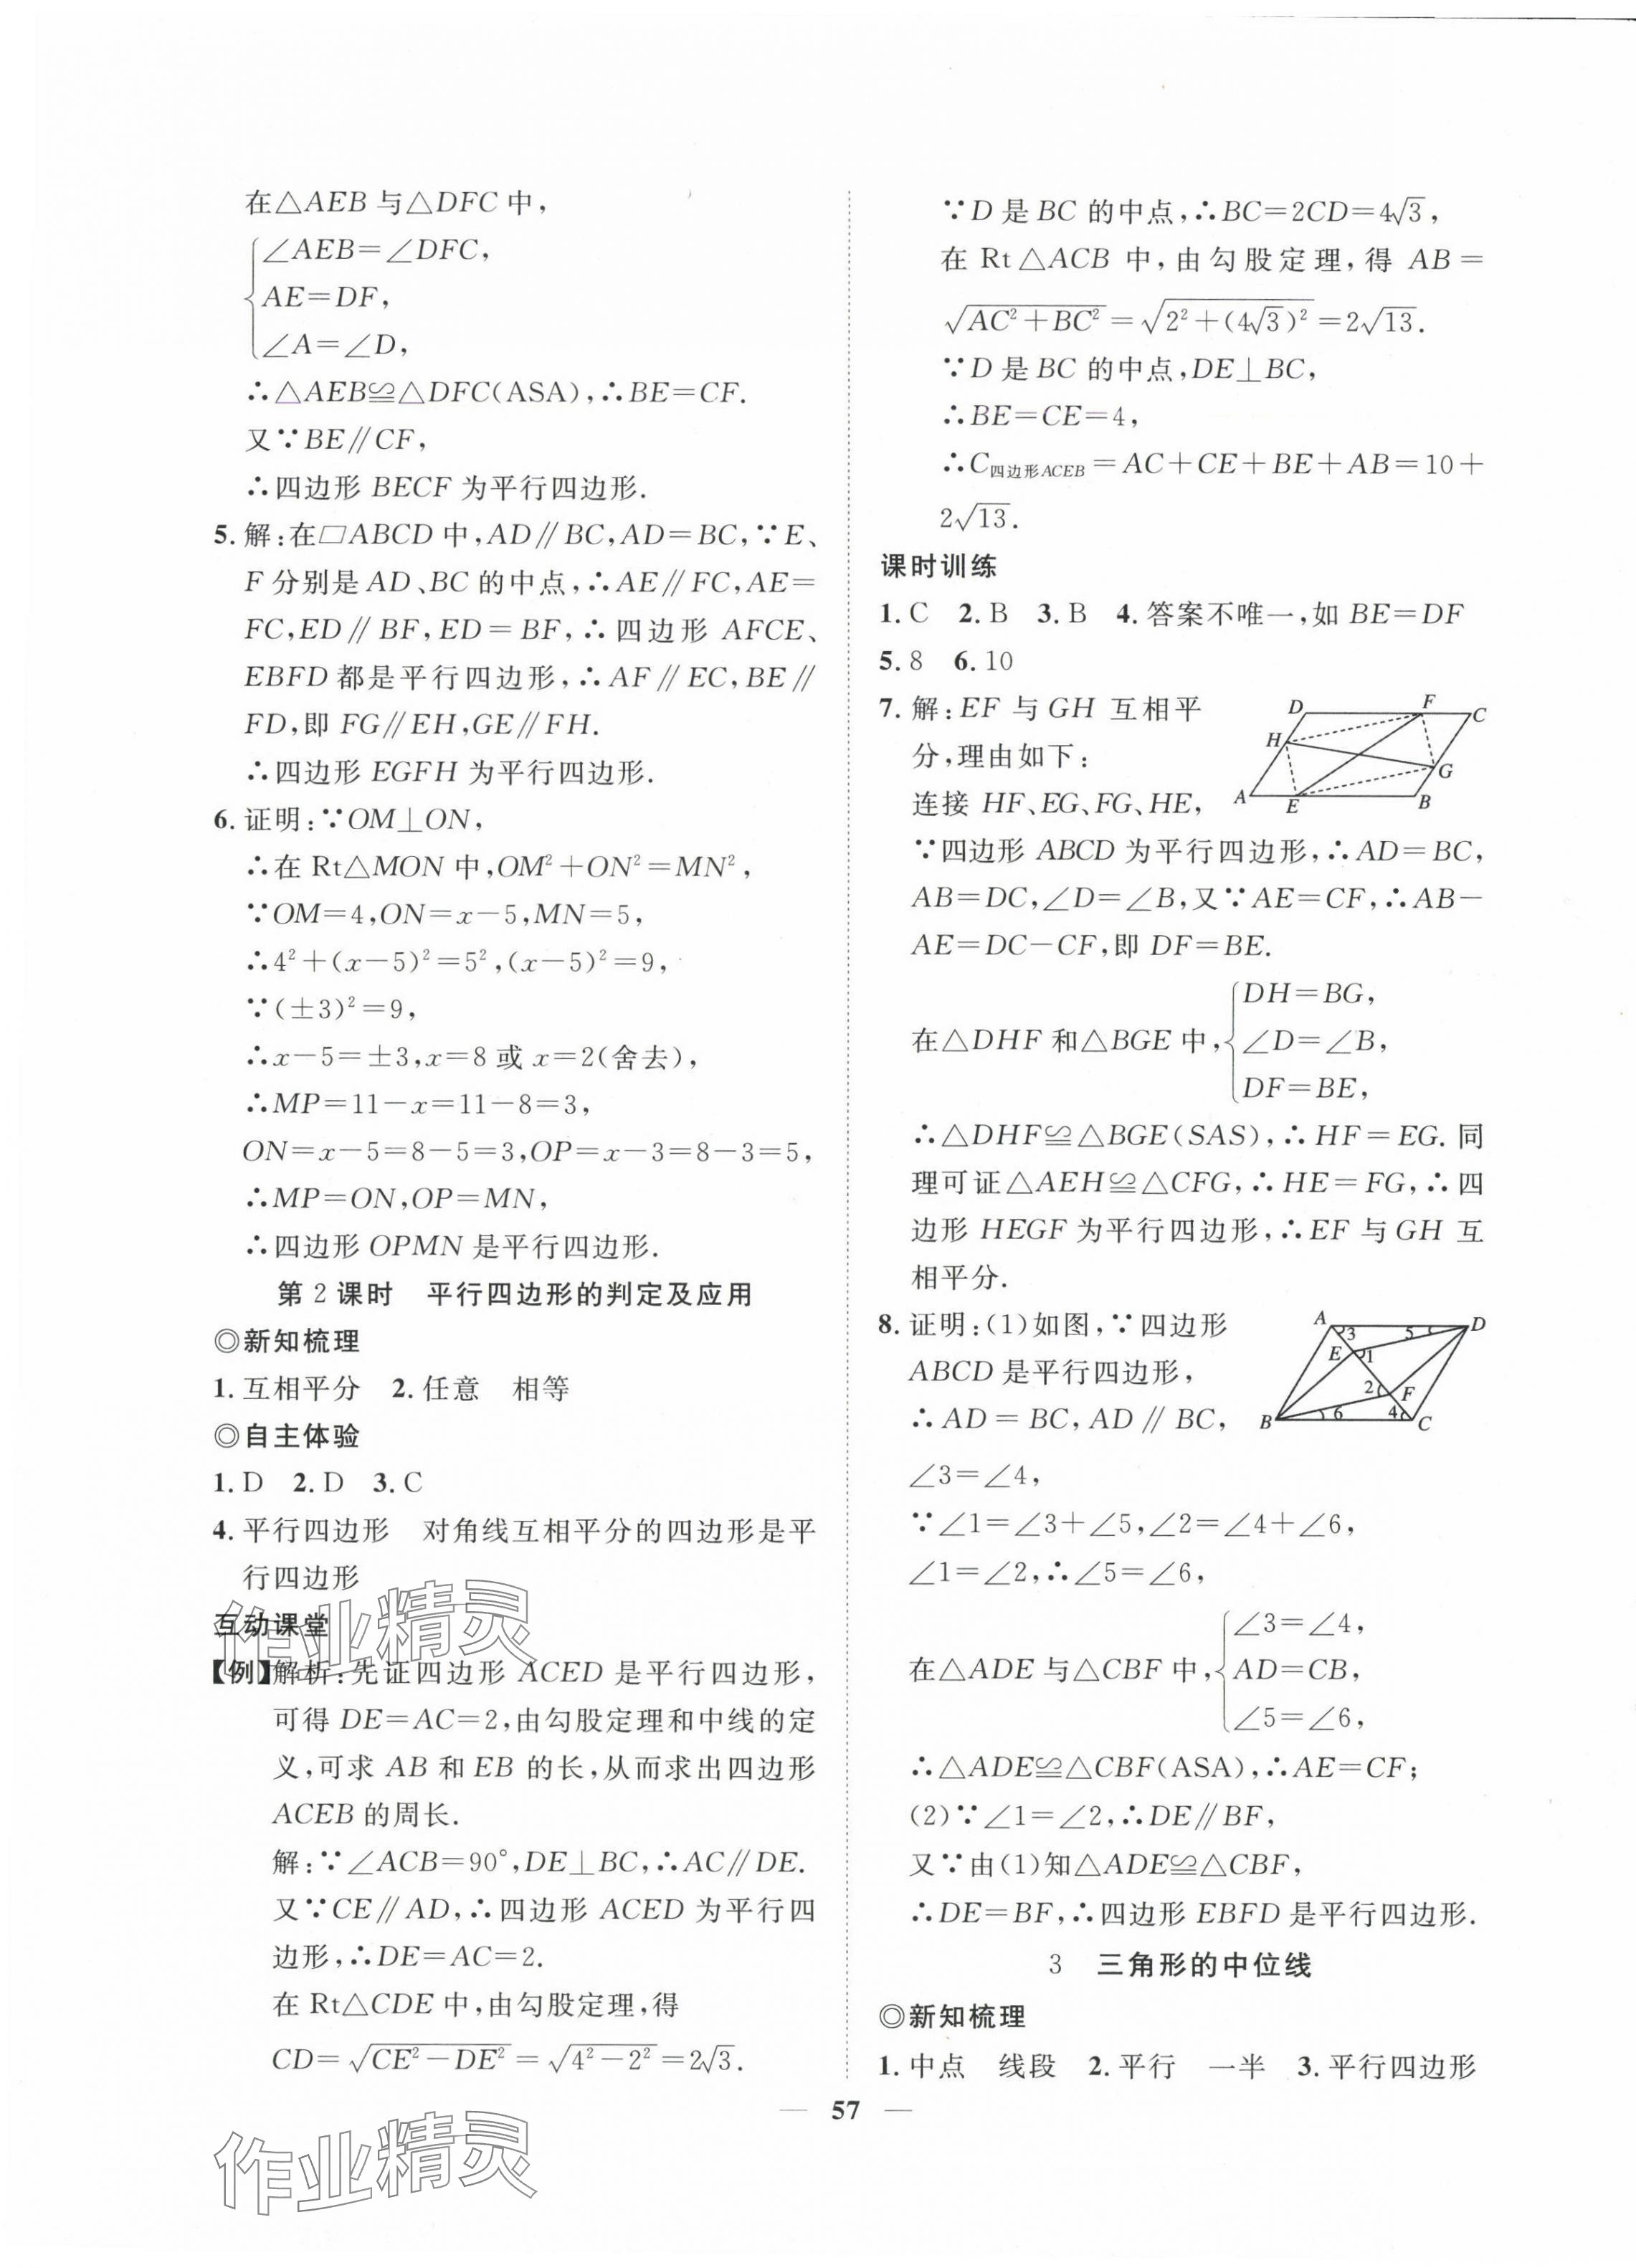 在△AEB与△DFC中，
∠AEB=∠DFC，
AE=DF，
∠A=∠D，
∴△AEB≌△DFC(ASA)，∴BE=CF.
又∵BE∥CF，
∴四边形BECF为平行四边形.
5. 解：在▱ABCD中，AD∥BC，AD=BC，∵E、
F分别是AD、BC的中点，∴AE∥FC，AE=
FC，ED∥BF，ED=BF，∴四边形AFCE、
EBFD都是平行四边形，∴AF∥EC，BE∥
FD，即FG∥EH，GE∥FH.
∴四边形EGFH为平行四边形.
6. 证明：∵OM⊥ON，
∴在Rt△MON中，OM²+ON²=MN²，
∵OM=4，ON=x-5，MN=5，
∴4²+(x-5)²=5²，(x-5)²=9，
∵(±3)²=9，
∴x-5=±3，x=8或x=2(舍去)，
∴MP=11-x=11-8=3，
ON=x-5=8-5=3，OP=x-3=8-3=5，
∴MP=ON，OP=MN，
∴四边形OPMN是平行四边形.
第2课时 平行四边形的判定及应用
◎新知梳理
1. 互相平分 2. 任意 相等
◎自主体验
1. D 2. D 3. C
4. 平行四边形 对角线互相平分的四边形是平
行四边形
互动课堂
【例】解析：先证四边形ACED是平行四边形，
可得DE=AC=2，由勾股定理和中线的定
义，可求AB和EB的长，从而求出四边形
ACEB的周长.
解：∵∠ACB=90°，DE⊥BC，∴AC∥DE.
又∵CE∥AD，∴四边形ACED为平行四
边形，∴DE=AC=2.
在Rt△CDE中，由勾股定理，得
CD=√(CE²-DE²)=√(4²-2²)=2√3.
∵D是BC的中点，∴BC=2CD=4√3，
在Rt△ACB中，由勾股定理，得AB=
√(AC²+BC²)=√(2²+(4√3)²)=2√13.
∵D是BC的中点，DE⊥BC，
∴BE=CE=4，
∴C四边形ACEB=AC+CE+BE+AB=10+
2√13.
课时训练
1. C 2. B 3. B 4. 答案不唯一，如BE=DF
5. 8 6. 10
7. 解：EF与GH互相平
分，理由如下：
连接HF、EG、FG、HE，
D F C
H G
A E B
∵四边形ABCD为平行四边形，∴AD=BC，
AB=DC，∠D=∠B，又∵AE=CF，∴AB-
AE=DC-CF，即DF=BE.
在△DHF和△BGE中，
DH=BG，
∠D=∠B，
DF=BE，
∴△DHF≌△BGE(SAS)，∴HF=EG. 同
理可证△AEH≌△CFG，∴HE=FG，∴四
边形HEGF为平行四边形，∴EF与GH互
相平分.
8. 证明：(1)如图，∵四边形
ABCD是平行四边形，
∴AD=BC，AD∥BC，
A 3 5 D
E 1
2 F
B 6 4 C
∠3=∠4，
∵∠1=∠3+∠5，∠2=∠4+∠6，
∠1=∠2，∴∠5=∠6，
在△ADE与△CBF中，
∠3=∠4，
AD=CB，
∠5=∠6，
∴△ADE≌△CBF(ASA)，∴AE=CF；
(2)∵∠1=∠2，∴DE∥BF，
又∵由(1)知△ADE≌△CBF，
∴DE=BF，∴四边形EBFD是平行四边形.
3 三角形的中位线
◎新知梳理
1. 中点 线段 2. 平行 一半 3. 平行四边形
— 57 —
作业精灵
作业精灵